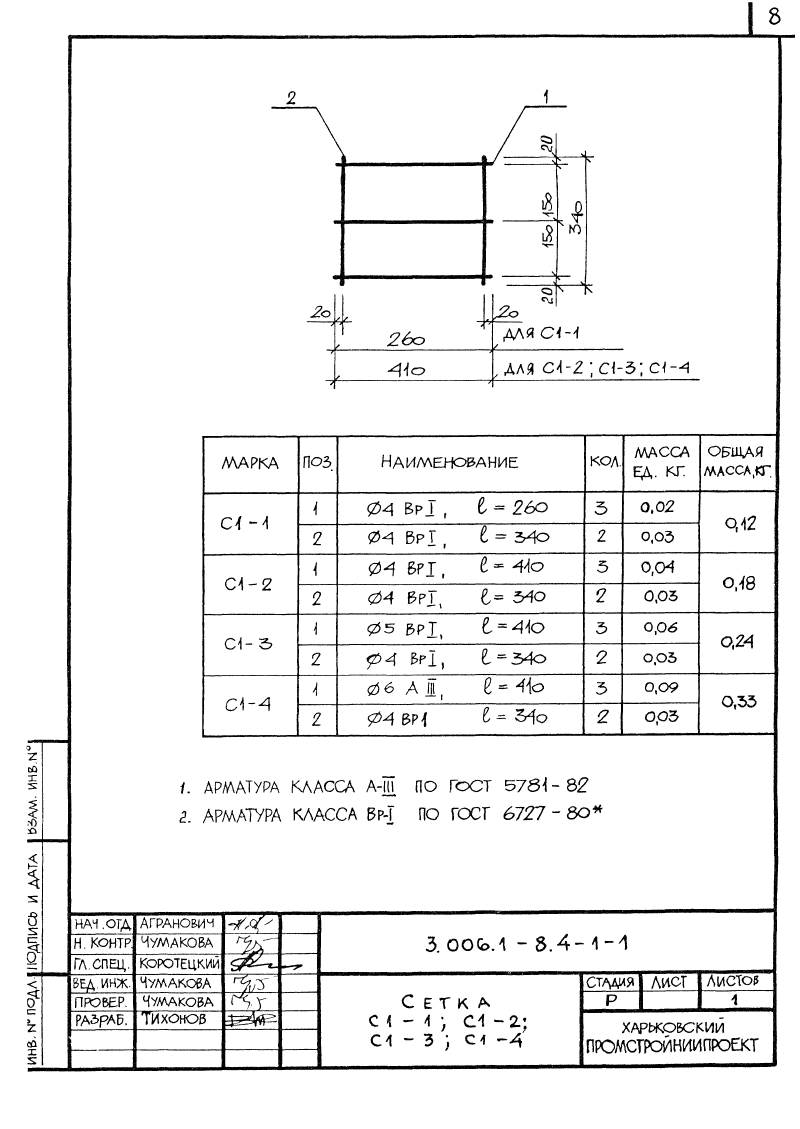 8
2
1
20
150
150
340
20
20
20
260
ДЛЯ С1-1
410
ДЛЯ С1-2; С1-3; С1-4
МАРКА ПОЗ. НАИМЕНОВАНИЕ КОЛ. МАССА ЕД. КГ. ОБЩАЯ МАССА, КГ.
С1-1 1 Ø4 ВрI, ℓ=260 3 0,02 0,12
2 Ø4 ВрI, ℓ=340 2 0,03
С1-2 1 Ø4 ВрI, ℓ=410 3 0,04 0,18
2 Ø4 ВрI, ℓ=340 2 0,03
С1-3 1 Ø5 ВрI, ℓ=410 3 0,06 0,24
2 Ø4 ВрI, ℓ=340 2 0,03
С1-4 1 Ø6 А III, ℓ=410 3 0,09 0,33
2 Ø4 Вр1 ℓ=340 2 0,03
1. АРМАТУРА КЛАССА А-III ПО ГОСТ 5781-82
2. АРМАТУРА КЛАССА Вр-I ПО ГОСТ 6727-80*
ВЗАМ. ИНВ.N°
ПОДПИСЬ И ДАТА
ИНВ. N° ПОДЛ.
НАЧ. ОТД АГРАНОВИЧ
Н. КОНТР. ЧУМАКОВА
ГЛ. СПЕЦ. КОРОТЕЦКИЙ
ВЕД. ИНЖ. ЧУМАКОВА
ПРОВЕР. ЧУМАКОВА
РАЗРАБ. ТИХОНОВ
3.006.1-8.4-1-1
СЕТКА
С1-1; С1-2;
С1-3; С1-4
СТАДИЯ ЛИСТ ЛИСТОВ
Р 1
ХАРЬКОВСКИЙ
ПРОМСТРОЙНИИПРОЕКТ